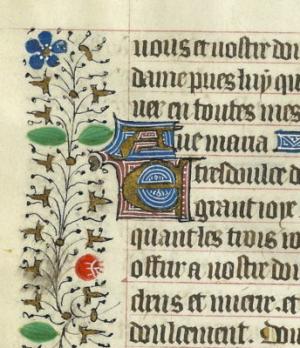 uous et uostre doi
dame pries luy qu
uer en toutes mes
Aue maria
E tresdoulce d
grant ioye
quant les trois ro
offrir a uostre doi
chris et mirre. et
doulcement. Dou